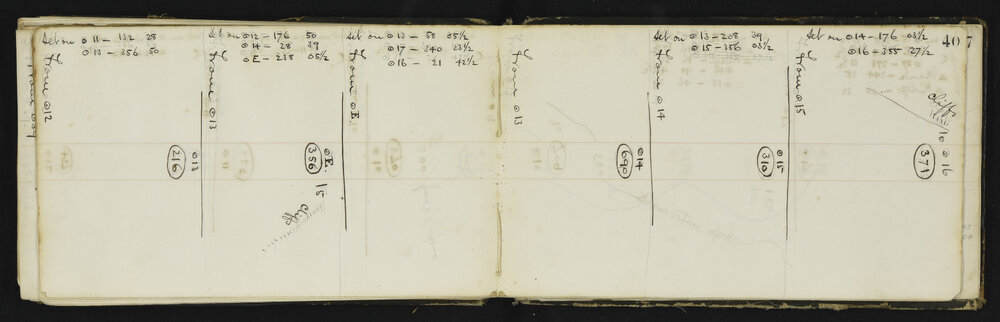 Set on ⊙ 11 – 132 28
⊙ 13 – 356 50
from ⊙ 12
⊙ 13
216
Set on ⊙ 12 – 176 50
⊙ 14 – 28 39
⊙ E – 238 05½
from ⊙ 13
⊙ E.
356
15
cliffs
Set on ⊙ 13 – 58 05½
⊙ 17 – 340 23½
⊙ 16 – 21 42½
from ⊙ E.
from ⊙ 13
⊙ 14
690
Set on ⊙ 13 – 208 39
⊙ 15 – 356 03½
from ⊙ 14
⊙ 15
310
Set on ⊙ 14 – 176 03½
⊙ 16 – 355 27½
407
from ⊙ 15
cliffs
10
⊙ 16
371